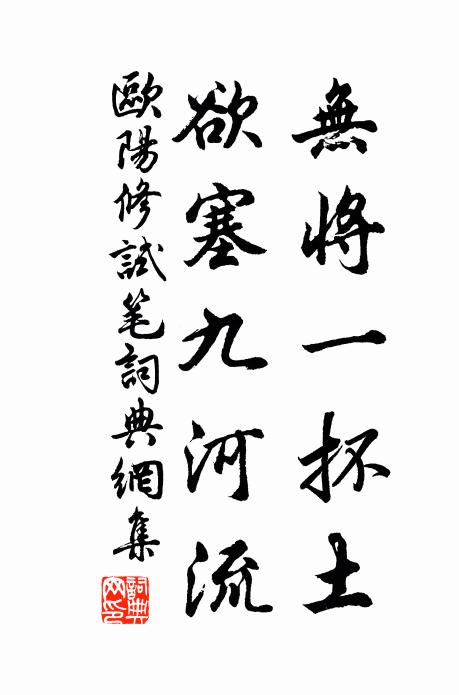 無將一抔土
欲塞九河流
歐陽修試笔詞典網集
詞典网印